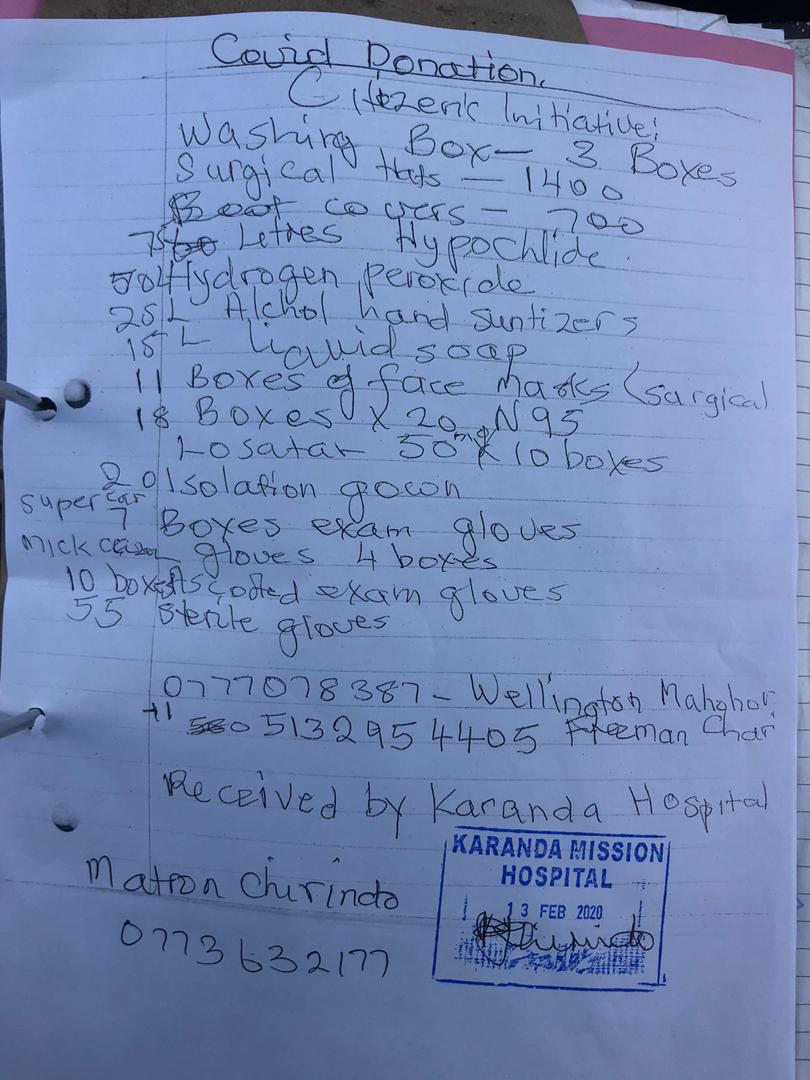 Covid Donation.
Citizen's Initiative:
Washing Box - 3 Boxes
Surgical Hats - 1400
Boot covers - 700
75 Letres Hypochlide.
50L Hydrogen peroxide
25 L Alchol hand suntizers
15 L liquid soap
11 Boxes of face Masks (surgical
18 Boxes X 20 N95
Losatar 50mg X 10 boxes
20 Isolation gown
super car
7 Boxes exam gloves
Mick gloves 4 boxes
10 boxes Ascoted exam gloves
55 sterile gloves
0777078387 - Wellington Mahohor
+1 5132954405 Freeman Chari
Received by Karanda Hospital
Matron Chirindo
0773632177
KARANDA MISSION
HOSPITAL
13 FEB 2020